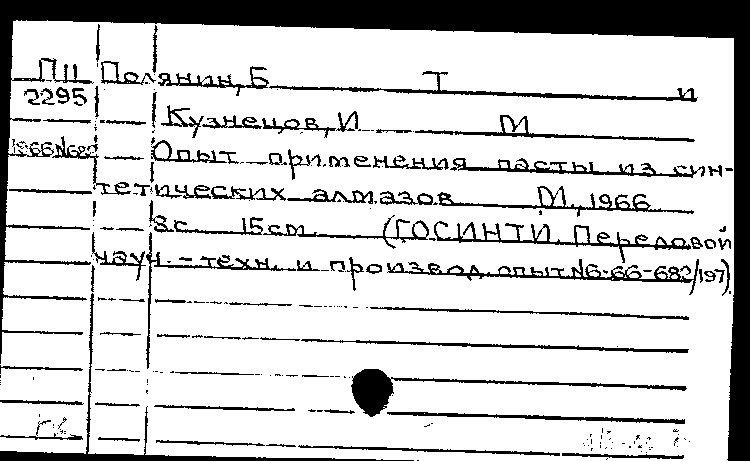 П11 Полянин, Б Т и
2295
Кузнецов, И М
1966 N682 Опыт применения пасты из син-
тетических алмазов М., 1966
8с. 15см. (ГОСИНТИ. Передовой
науч. - техн. и производ. опыт N6-66-682/197).